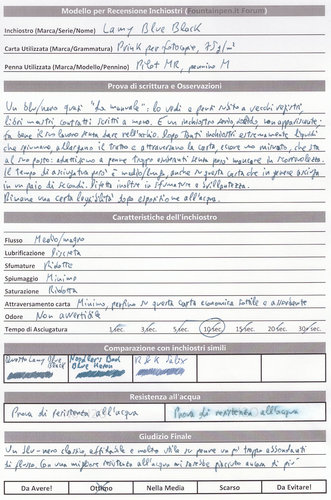 Modello per Recensione Inchiostri (Fountainpen.it Forum)
Inchiostro (Marca/Serie/Nome) Lamy Blue Black
Carta Utilizzata (Marca/Grammatura) Prink per fotocopie, 75g/m²
Penna Utilizzata (Marca/Modello/Pennino) Pilot MR, pennino M
Prova di scrittura e Osservazioni
Un blu/nero quasi "da manuale": lo vedi e pensi subito a vecchi registri,
libri mastri, contratti scritti a mano. È un inchiostro serio, solido, non appariscente.
fa bene il suo lavoro senza dare nell'occhio. Dopo tanti inchiostri estremamente liquidi
che spiumano, allargano il tratto e attraversano la carta, eccone uno misurato, che sta
al suo posto: adattissimo a penne troppo esuberanti senza però mancare in scorrevolezza.
Il tempo di asciugatura però è medio/lungo, anche su questa carta che in genere asciuga
in un paio di secondi. Difetta inoltre in sfumature e brillantezza.
Rimane una certa leggibilità dopo esposizione all'acqua.
Caratteristiche dell'inchiostro
Flusso Medio/magro
Lubrificazione Discreta
Sfumature Ridotte
Spiumaggio Minimo
Saturazione Ridotta
Attraversamento carta Minimo, perfino su questa carta economica sottile e assorbente
Odore Non avvertibile
Tempo di Asciugatura 1 sec. 3 sec. 5 sec. 10 sec. 15 sec. 20 sec. 30 sec.
Comparazione con inchiostri simili
Questo Lamy Blue Black
Noodlers Bad Blue Heron
R&K Salix
Resistenza all'acqua
Prova di resistenza all'acqua Prova di resistenza all'acqua
Giudizio Finale
Un blu-nero classico, affidabile e molto utile su penne un po' troppo abbondanti
di flusso. Con una migliore resistenza all'acqua mi sarebbe piaciuto ancora di più
Da Avere! Ottimo Nella Media Scarso Da Evitare!